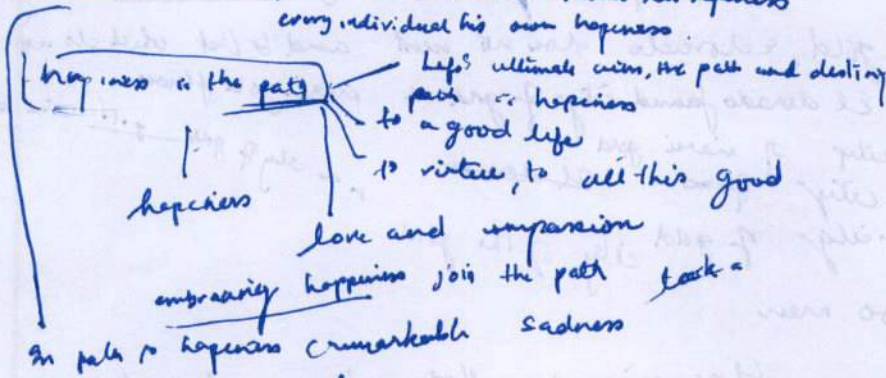 every individual his own hapeness
hapiness is the path
Life's ultimate aim, the path and destiny
path hapeiness
to a good life
to virtue, to all this good
hapeiness
love and compassion
embracing happiness join the path took a
path to hapeness sadness